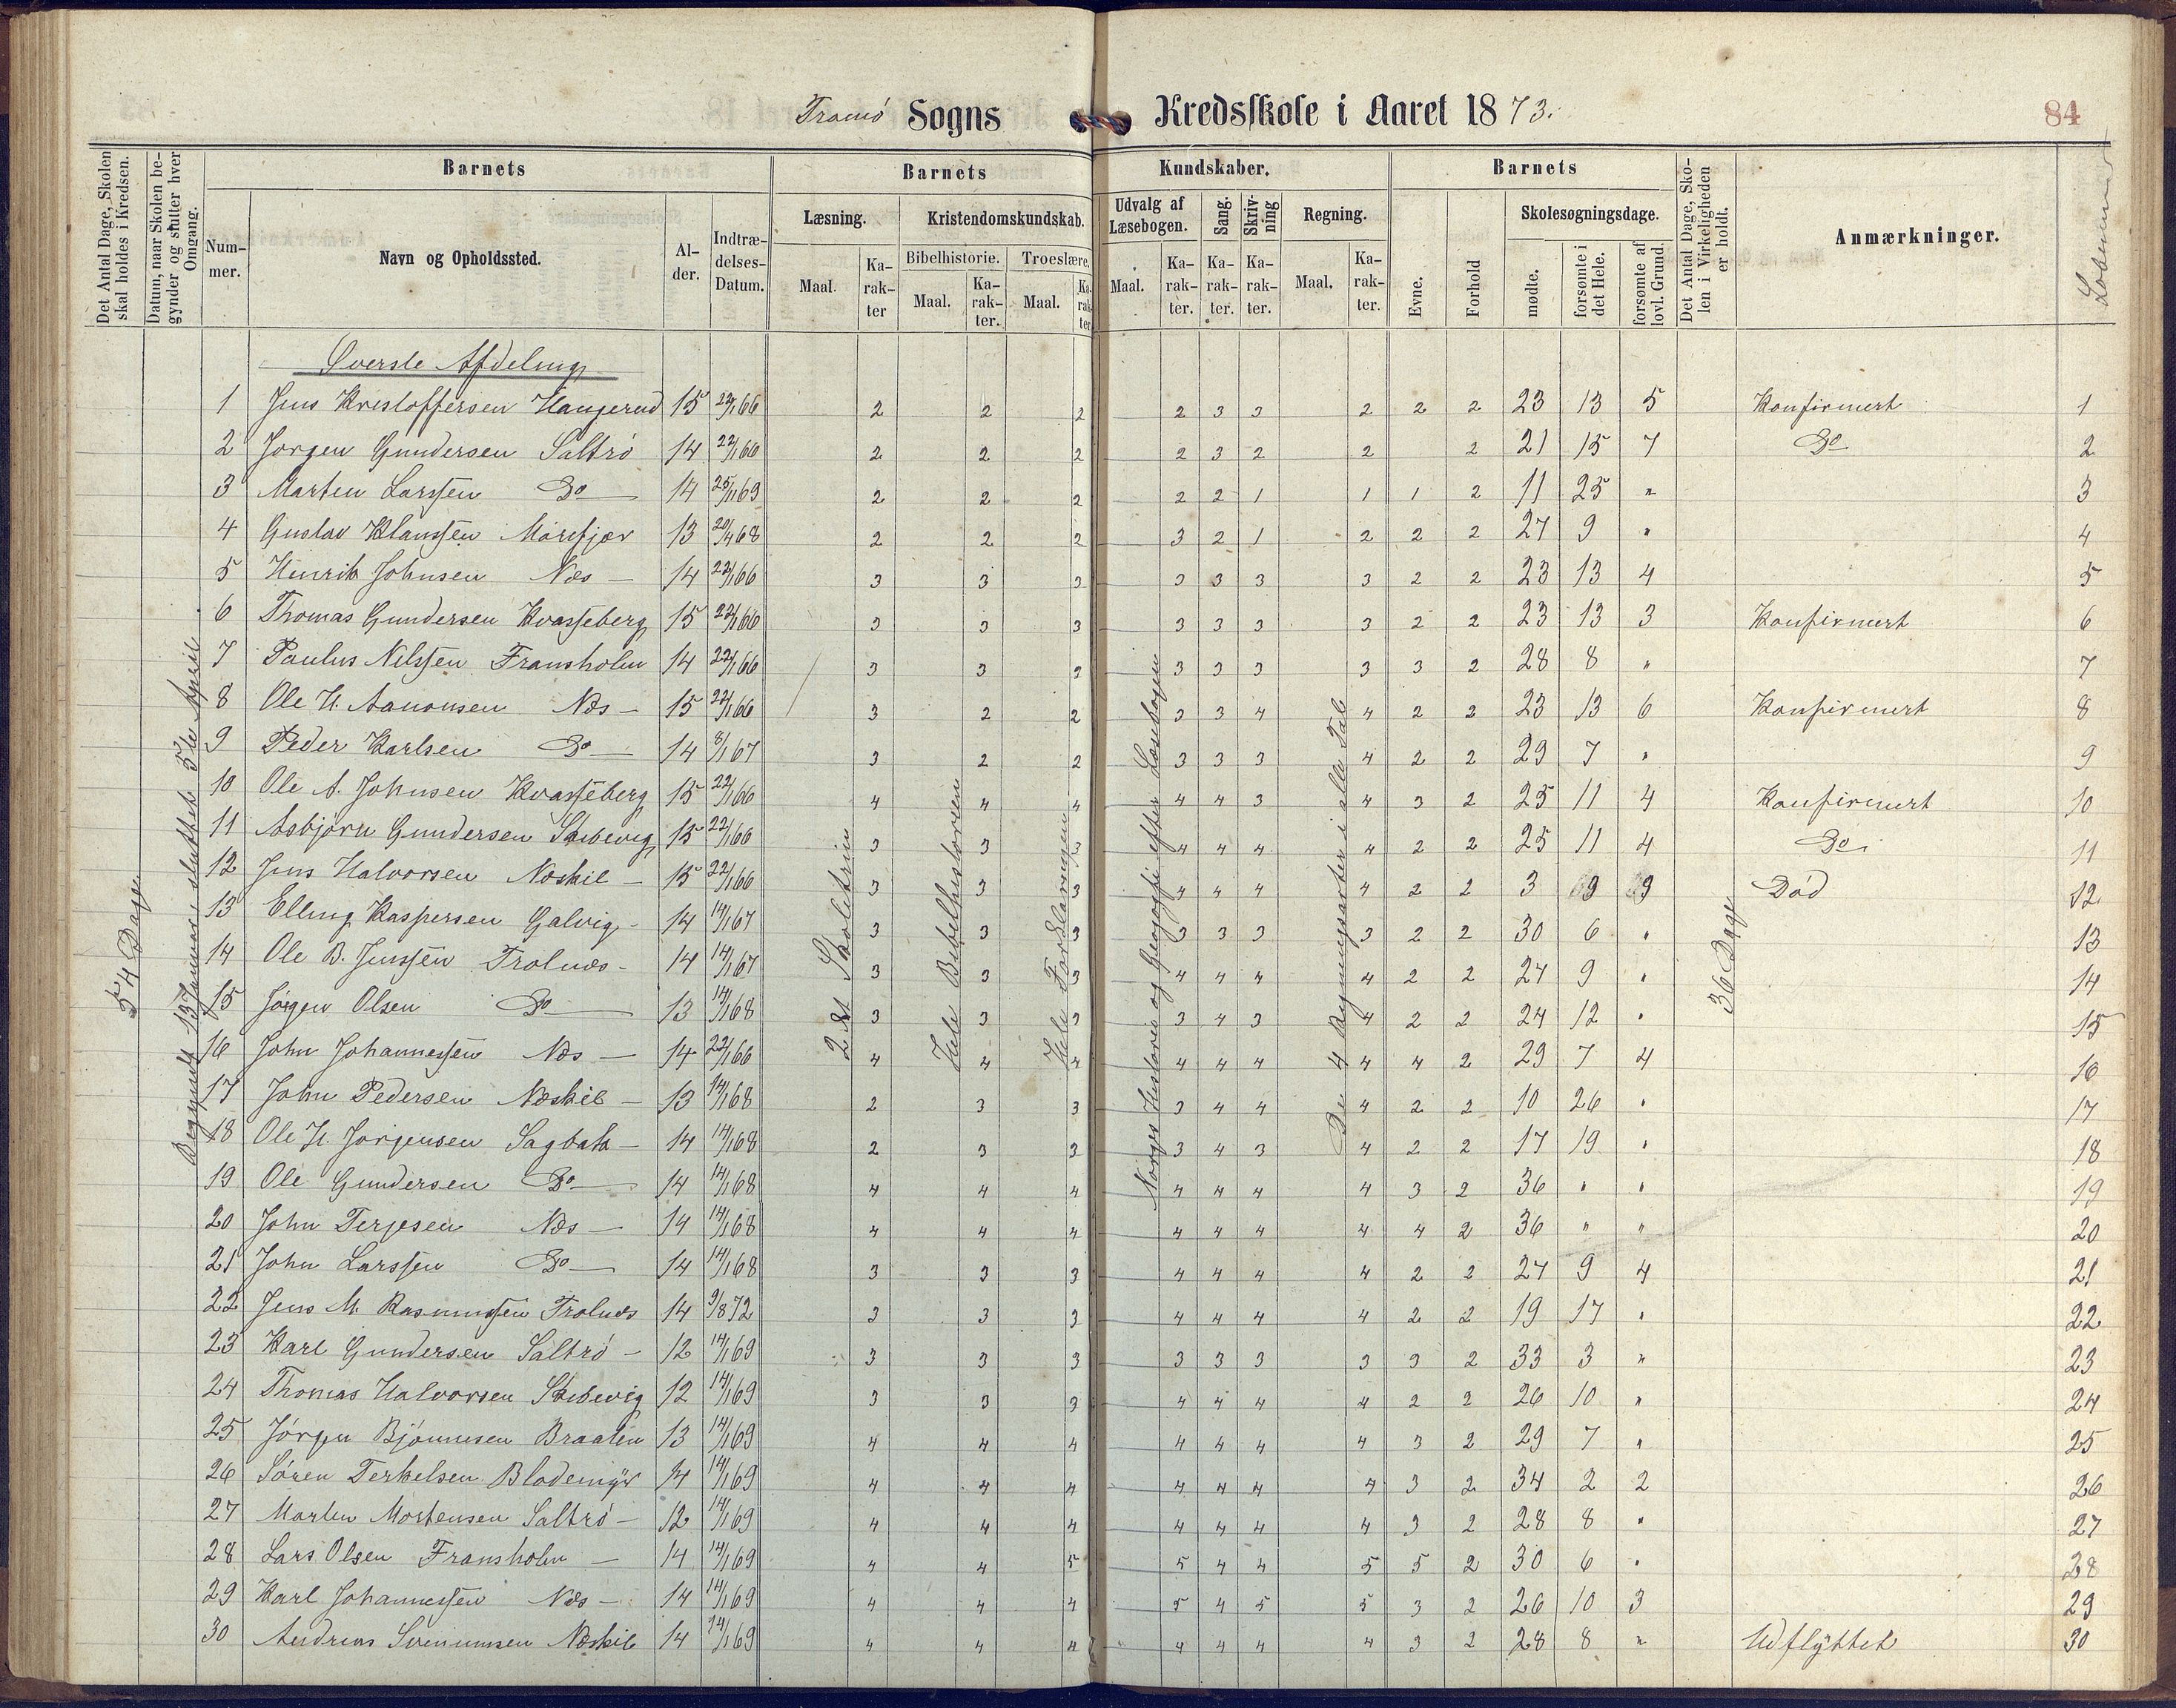 Tromø Sogns Kredsskole i Aaret 1873.
84
Det Antal Dage, Skolen skal holdes i Kredsen.
Datum, naar Skolen begynder og slutter hver Omgang.
Barnets
Nummer.
Navn og Opholdssted.
Alder.
Indtrædelses-Datum.
Barnets Kundskaber.
Læsning.
Maal.
Karakter
Kristendomskundskab.
Bibelhistorie.
Maal.
Karakter.
Troeslære.
Maal.
Karakter.
Udvalg af Læsebogen.
Maal.
Karakter.
Sang.
Karakter.
Skrivning
Karakter.
Regning.
Maal.
Karakter.
Barnets
Evne.
Forhold
Skolesøgningsdage.
mødte.
forsømte i det Hele.
forsømte af lovl. Grund.
Det Antal Dage, Skolen i Virkeligheden er holdt.
Anmærkninger.
Løbenummer
54 Dage.
Begyndt 13 Januar, sluttet 5te April
2det Skoletrin
Hele Bibelhistorien
Hele Forklaringen
Norges Historie og Geografi efter Læsebogen
De 4 Regningsarter i alle Tal
36 Dage
Øverste Afdeling
1 Jens Kristoffersen Haugerud 15 22/1 66 2 2 2 2 3 3 2 2 2 23 13 5 Konfirmert 1
2 Jørgen Gundersen Saltrø 14 22/1 66 2 2 2 2 3 2 2 2 21 15 7 Do 2
3 Marten Larssen Do 14 25/11 69 2 2 2 2 2 1 1 1 2 11 25 " 3
4 Gustav Klaussen Mørefjær 13 20/4 68 2 2 2 3 2 1 2 2 2 27 9 " 4
5 Henrik Johnsen Næs 14 22/1 66 3 3 3 3 3 3 3 2 2 23 13 4 5
6 Thomas Gundersen Kvasseberg 15 22/1 66 3 3 3 3 3 3 3 2 2 23 13 3 Konfirmert 6
7 Paulus Nilssen Fransholm 14 22/1 66 3 3 3 3 3 3 3 3 2 28 8 " 7
8 Ole H. Aanonsen Næs 15 22/1 66 3 2 2 3 3 4 4 2 2 23 13 6 Konfirmert 8
9 Peder Karlsen Do 14 8/1 67 3 2 2 3 3 3 4 2 2 29 7 " 9
10 Ole A. Johnsen Kvasseberg 15 22/1 66 4 4 4 4 4 3 4 3 2 25 11 4 Konfirmert 10
11 Asbjørn Gundersen Skibevig 15 22/1 66 3 3 3 4 4 4 4 2 2 25 11 4 Do 11
12 Jens Halvorsen Næskil 15 22/1 66 3 3 3 4 4 4 4 2 2 3 9 9 Død 12
13 Elling Kaspersen Galvig 14 14/1 67 3 3 3 3 3 3 3 2 2 30 6 " 13
14 Ole B. Jenssen Trolnæs 14 14/1 67 3 3 3 4 4 4 4 2 2 27 9 " 14
15 Jørgen Olsen Do 13 14/1 68 3 3 3 3 4 3 4 2 2 24 12 " 15
16 John Johannessen Næs 14 22/1 66 4 4 4 4 4 4 4 4 2 29 7 4 16
17 John Pedersen Næskil 13 14/1 68 2 3 3 3 4 4 4 2 2 10 26 " 17
18 Ole H. Jørgensen Sagbak 14 14/1 68 2 3 3 3 4 3 4 2 2 17 19 " 18
19 Ole Gundersen Do 14 14/1 68 4 4 4 4 4 4 4 3 2 36 " " 19
20 John Terjesen Næs 14 14/1 68 4 4 4 4 4 4 4 4 2 36 " " 20
21 John Larssen Do 14 14/1 68 3 3 3 4 4 4 4 2 2 27 9 4 21
22 Jens M. Rasmussen Trolnæs 14 9/8 72 3 3 3 4 4 4 4 2 2 19 17 " 22
23 Karl Gundersen Saltrø 12 14/1 69 3 3 3 3 3 3 3 3 2 33 3 " 23
24 Thomas Halvorsen Skibevig 12 14/1 69 3 3 3 4 4 4 4 2 2 26 10 " 24
25 Jørgen Bjønnesen Braaten 13 14/1 69 4 4 4 4 4 4 4 3 2 29 7 " 25
26 Søren Terkelsen Blodemyr 14 14/1 69 4 4 4 4 4 4 4 3 2 34 2 2 26
27 Marten Mortensen Saltrø 12 14/1 69 4 4 4 4 4 4 4 3 2 28 8 " 27
28 Lars Olsen Fransholm 14 14/1 69 4 4 5 5 4 4 5 5 2 30 6 " 28
29 Karl Johannessen Næs 14 14/1 69 4 4 4 5 4 5 5 3 2 26 10 3 29
30 Andreas Svenumsen Næskil 14 14/1 69 4 4 4 4 4 4 4 3 2 28 8 " Udflyttet 30